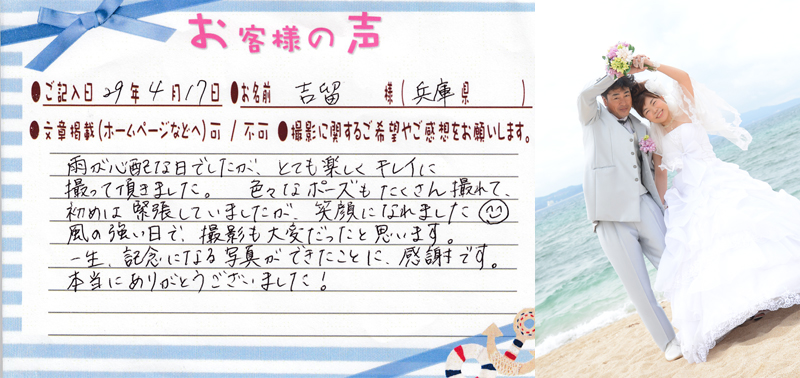 お客様の声
●ご記入日 29年4月17日 ●お名前 吉留 様（兵庫県 ）
●文章掲載（ホームページなどへ）可 / 不可 ●撮影に関するご希望やご感想をお願いします。
雨が心配な日でしたが、とても楽しくキレイに
撮って頂きました。 色々なポーズもたくさん撮れて、
初めは緊張していましたが、笑顔になれました
風の強い日で、撮影も大変だったと思います。
一生、記念になる写真ができたことに、感謝です。
本当にありがとうございました！